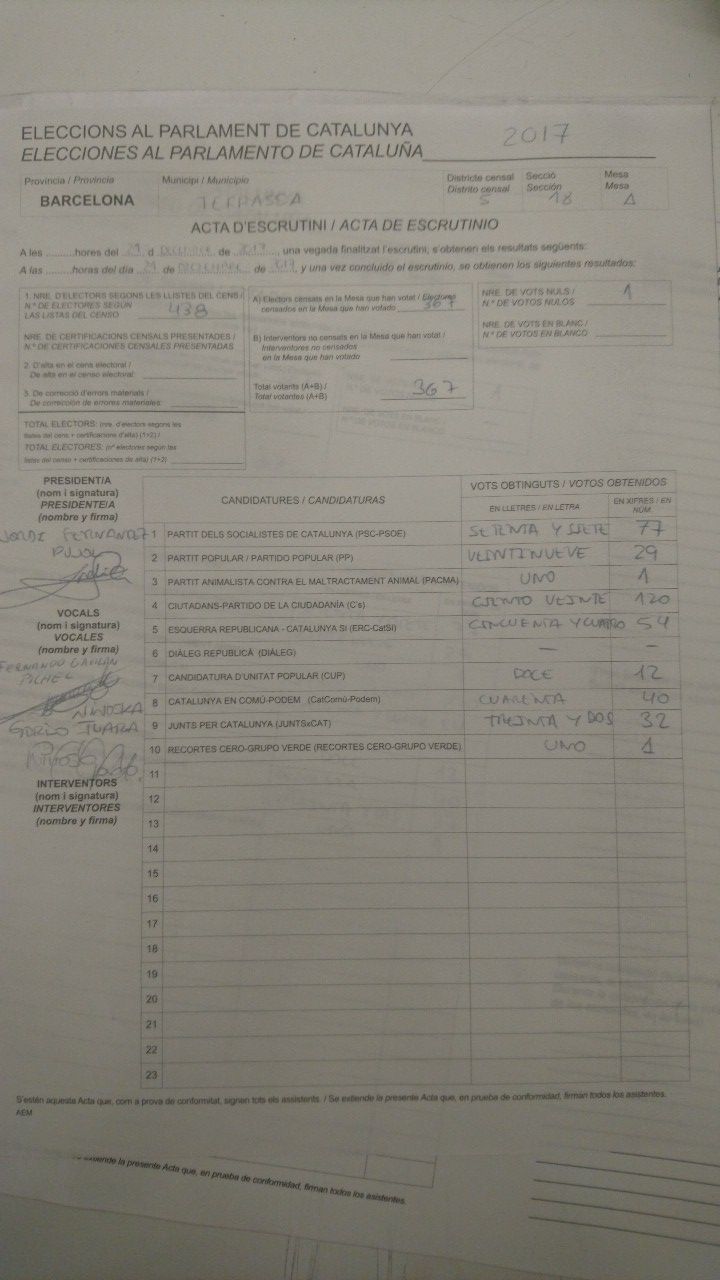 ELECCIONS AL PARLAMENT DE CATALUNYA
ELECCIONES AL PARLAMENTO DE CATALUÑA 2017
Provincia / Provincia Municipi / Municipio Districte censal Secció Mesa
Distrito censal Sección Mesa
BARCELONA TERRASSA 5 18 A
ACTA D'ESCRUTINI / ACTA DE ESCRUTINIO
A les ..........hores del 21 d DICIEMBRE de 2017, una vegada finalitzat l'escrutini, s'obtenen els resultats següents:
A las ..........horas del día 21 de DICIEMBRE de 2017, y una vez concluido el escrutinio, se obtienen los siguientes resultados:
1. NRE. D'ELECTORS SEGONS LES LLISTES DEL CENS /
N.º DE ELECTORES SEGÚN
LAS LISTAS DEL CENSO 438
NRE. DE CERTIFICACIONS CENSALS PRESENTADES /
N.º DE CERTIFICACIONES CENSALES PRESENTADAS
2. D'alta en el cens electoral /
De alta en el censo electoral:
3. De correcció d'errors materials /
De corrección de errores materiales:
TOTAL ELECTORS: (nre. d'electors segons les
llistes del cens + certificacions d'alta) (1+2) /
TOTAL ELECTORES: (nº electores según las
listas del censo + certificaciones de alta) (1+2)
A) Electors censats en la Mesa que han votat / Electores
censados en la Mesa que han votado 367
B) Interventors no censats en la Mesa que han votat /
Interventores no censados
en la Mesa que han votado
Total votants (A+B) /
Total votantes (A+B) 367
NRE. DE VOTS NULS /
N.º DE VOTOS NULOS 1
NRE. DE VOTS EN BLANC /
N.º DE VOTOS EN BLANCO
PRESIDENT/A
(nom i signatura)
PRESIDENTE/A
(nombre y firma)
JORDI FERNANDEZ
PUJOL
VOCALS
(nom i signatura)
VOCALES
(nombre y firma)
FERNANDO
INTERVENTORS
(nom i signatura)
INTERVENTORES
(nombre y firma)
CANDIDATURES / CANDIDATURAS VOTS OBTINGUTS / VOTOS OBTENIDOS
EN LLETRES / EN LETRA EN XIFRES / EN NÚM.
1 PARTIT DELS SOCIALISTES DE CATALUNYA (PSC-PSOE) SETENTA Y SIETE 77
2 PARTIT POPULAR / PARTIDO POPULAR (PP) VEINTINUEVE 29
3 PARTIT ANIMALISTA CONTRA EL MALTRACTAMENT ANIMAL (PACMA) UNO 1
4 CIUTADANS-PARTIDO DE LA CIUDADANÍA (C's) CIENTO VEINTE 120
5 ESQUERRA REPUBLICANA - CATALUNYA SÍ (ERC-CatSí) CINCUENTA Y CUATRO 54
6 DIÀLEG REPUBLICÀ (DIÀLEG) — —
7 CANDIDATURA D'UNITAT POPULAR (CUP) DOCE 12
8 CATALUNYA EN COMÚ-PODEM (CatComú-Podem) CUARENTA 40
9 JUNTS PER CATALUNYA (JUNTSxCAT) TREINTA Y DOS 32
10 RECORTES CERO-GRUPO VERDE (RECORTES CERO-GRUPO VERDE) UNO 1
11
12
13
14
15
16
17
18
19
20
21
22
23
S'estén aquesta Acta que, com a prova de conformitat, signen tots els assistents. / Se extiende la presente Acta que, en prueba de conformidad, firman todos los asistentes.
AEM
extiende la presente Acta que, en prueba de conformidad, firman todos los asistentes.